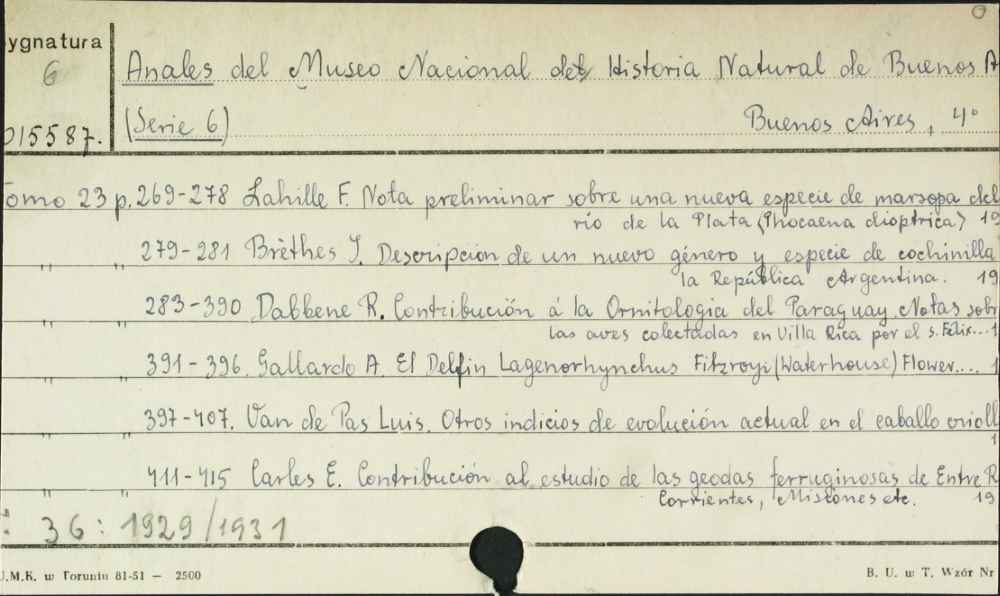 ygnatura
6
015587.
Anales del Museo Nacional de Historia Natural de Buenos A
(Serie 6)
Buenos Aires, 4°
omo 23 p. 269-278 Lahille F. Nota preliminar sobre una nueva especie de marsopa del
río de la Plata (Phocaena dioptrica) 19
" " 279-281 Brèthes J. Descripcion de un nuevo género y especie de cochinilla
la República Argentina. 19
" " 283-390 Dabbene R. Contribución á la Ornitologia del Paraguay. Notas sobr
las aves colectadas en Villa Rica por el s. Félix... 1
" " 391-396. Gallardo A. El Delfin Lagenorhynchus Fitzroyi (Waterhouse) Flower.... 1
" " 397-407. Van de Pas Luis. Otros indicios de evolución actual en el caballo crioll
1
" " 411-415 Carles E. Contribución al estudio de las geodas ferruginosas de Entre R
Corrientes, Misiones etc. 19
: 36: 1929/1931
U.M.K. w Toruniu 81-51 — 2500
B. U. w T. Wzór Nr